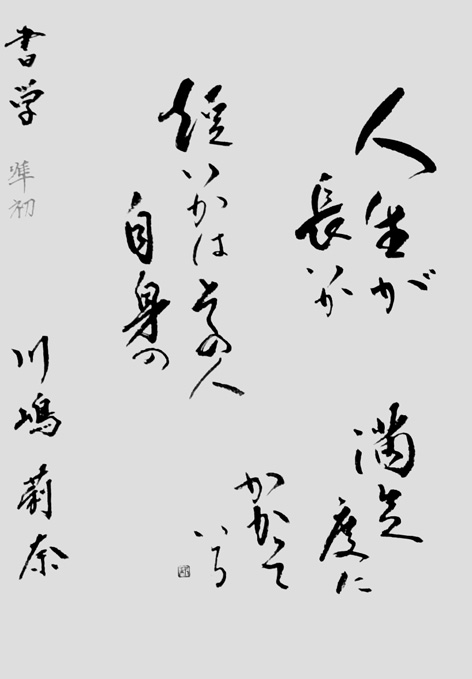 人生が
長いか
短いかはその人
自身の
満足
度に
かかって
いる
書学 準初 川嶋 莉奈